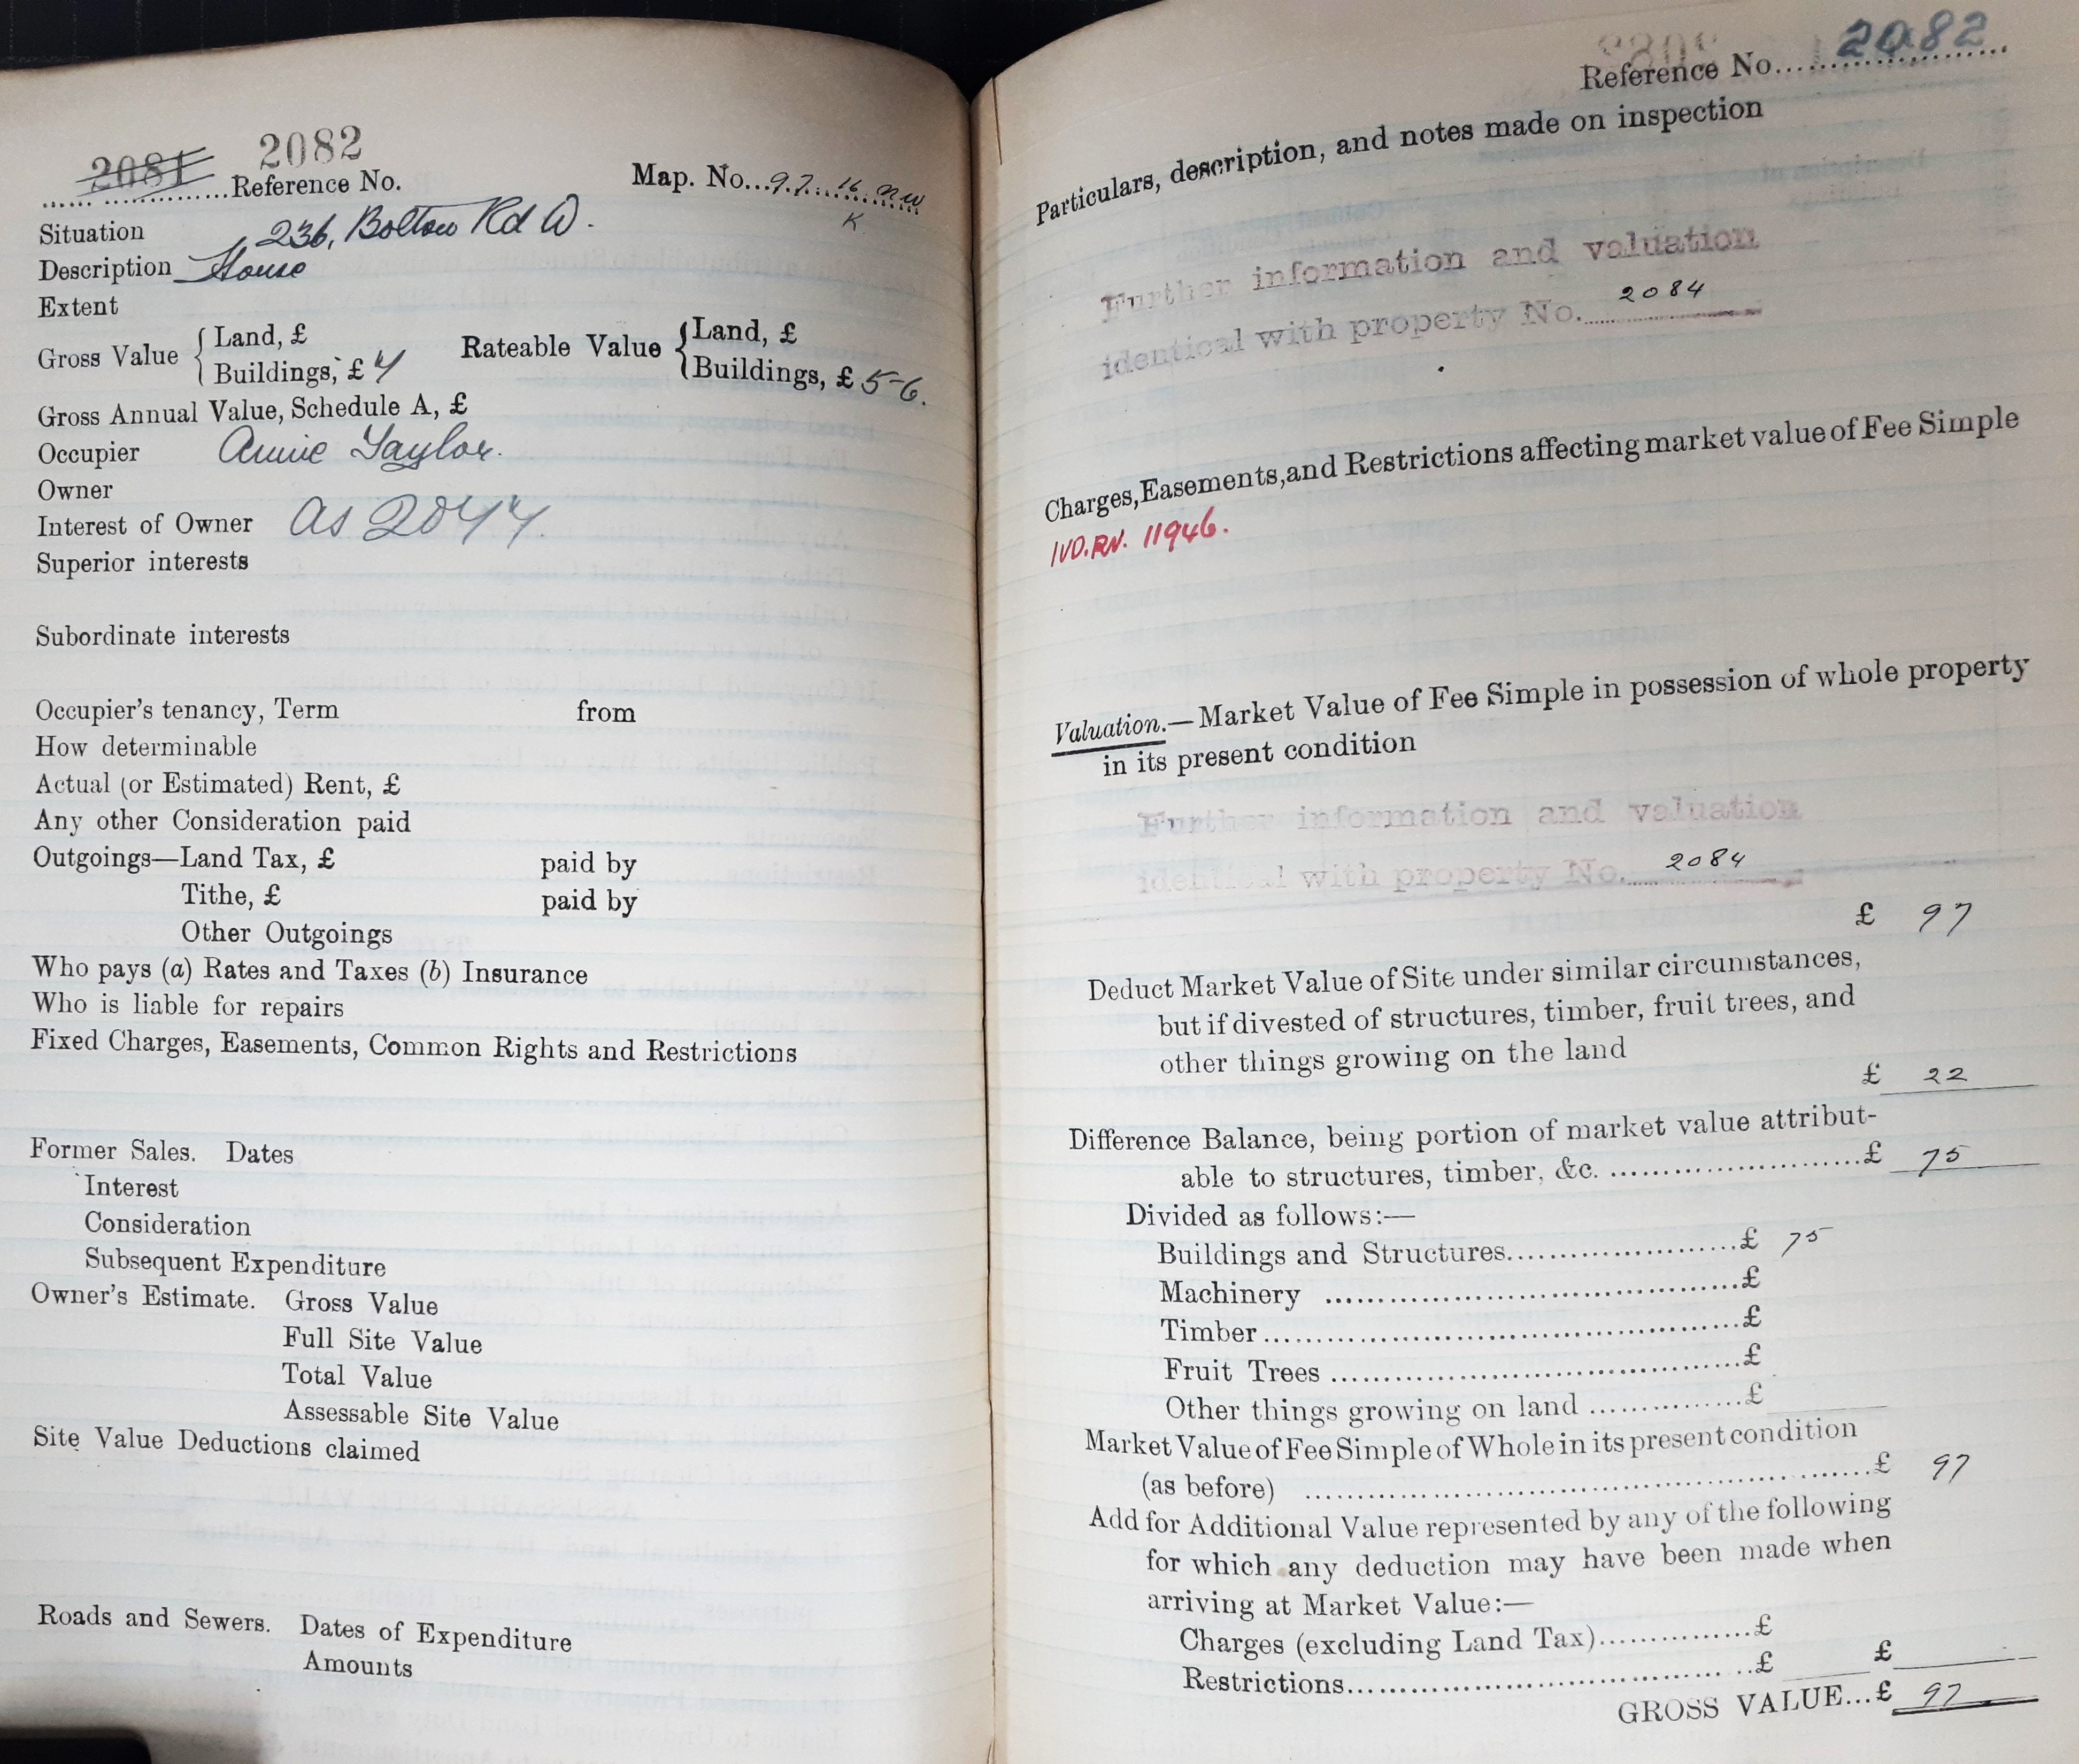 2081 2082
Reference No. Map. No. 97. 16 NW
K
Situation 236, Bolton Rd W.
Description House
Extent
Gross Value { Land, £ Rateable Value { Land, £
Buildings, £ 4 Buildings, £ 5-6.
Gross Annual Value, Schedule A, £
Occupier Annie Taylor.
Owner
Interest of Owner As 2044.
Superior interests
Subordinate interests
Occupier's tenancy, Term from
How determinable
Actual (or Estimated) Rent, £
Any other Consideration paid
Outgoings—Land Tax, £ paid by
Tithe, £ paid by
Other Outgoings
Who pays (a) Rates and Taxes (b) Insurance
Who is liable for repairs
Fixed Charges, Easements, Common Rights and Restrictions
Former Sales. Dates
Interest
Consideration
Subsequent Expenditure
Owner's Estimate. Gross Value
Full Site Value
Total Value
Assessable Site Value
Site Value Deductions claimed
Roads and Sewers. Dates of Expenditure
Amounts
Reference No. 2082
Particulars, description, and notes made on inspection
Further information and valuation
identical with property No. 2084
Charges, Easements, and Restrictions affecting market value of Fee Simple
IVD. RN. 11946.
Valuation.—Market Value of Fee Simple in possession of whole property
in its present condition
Further information and valuation
identical with property No. 2084
£ 97
Deduct Market Value of Site under similar circumstances,
but if divested of structures, timber, fruit trees, and
other things growing on the land
£ 22
Difference Balance, being portion of market value attribut-
able to structures, timber, &c. £ 75
Divided as follows:—
Buildings and Structures £ 75
Machinery £
Timber £
Fruit Trees £
Other things growing on land £
Market Value of Fee Simple of Whole in its present condition
(as before) £ 97
Add for Additional Value represented by any of the following
for which any deduction may have been made when
arriving at Market Value:—
Charges (excluding Land Tax) £
Restrictions £ £
GROSS VALUE...£ 97